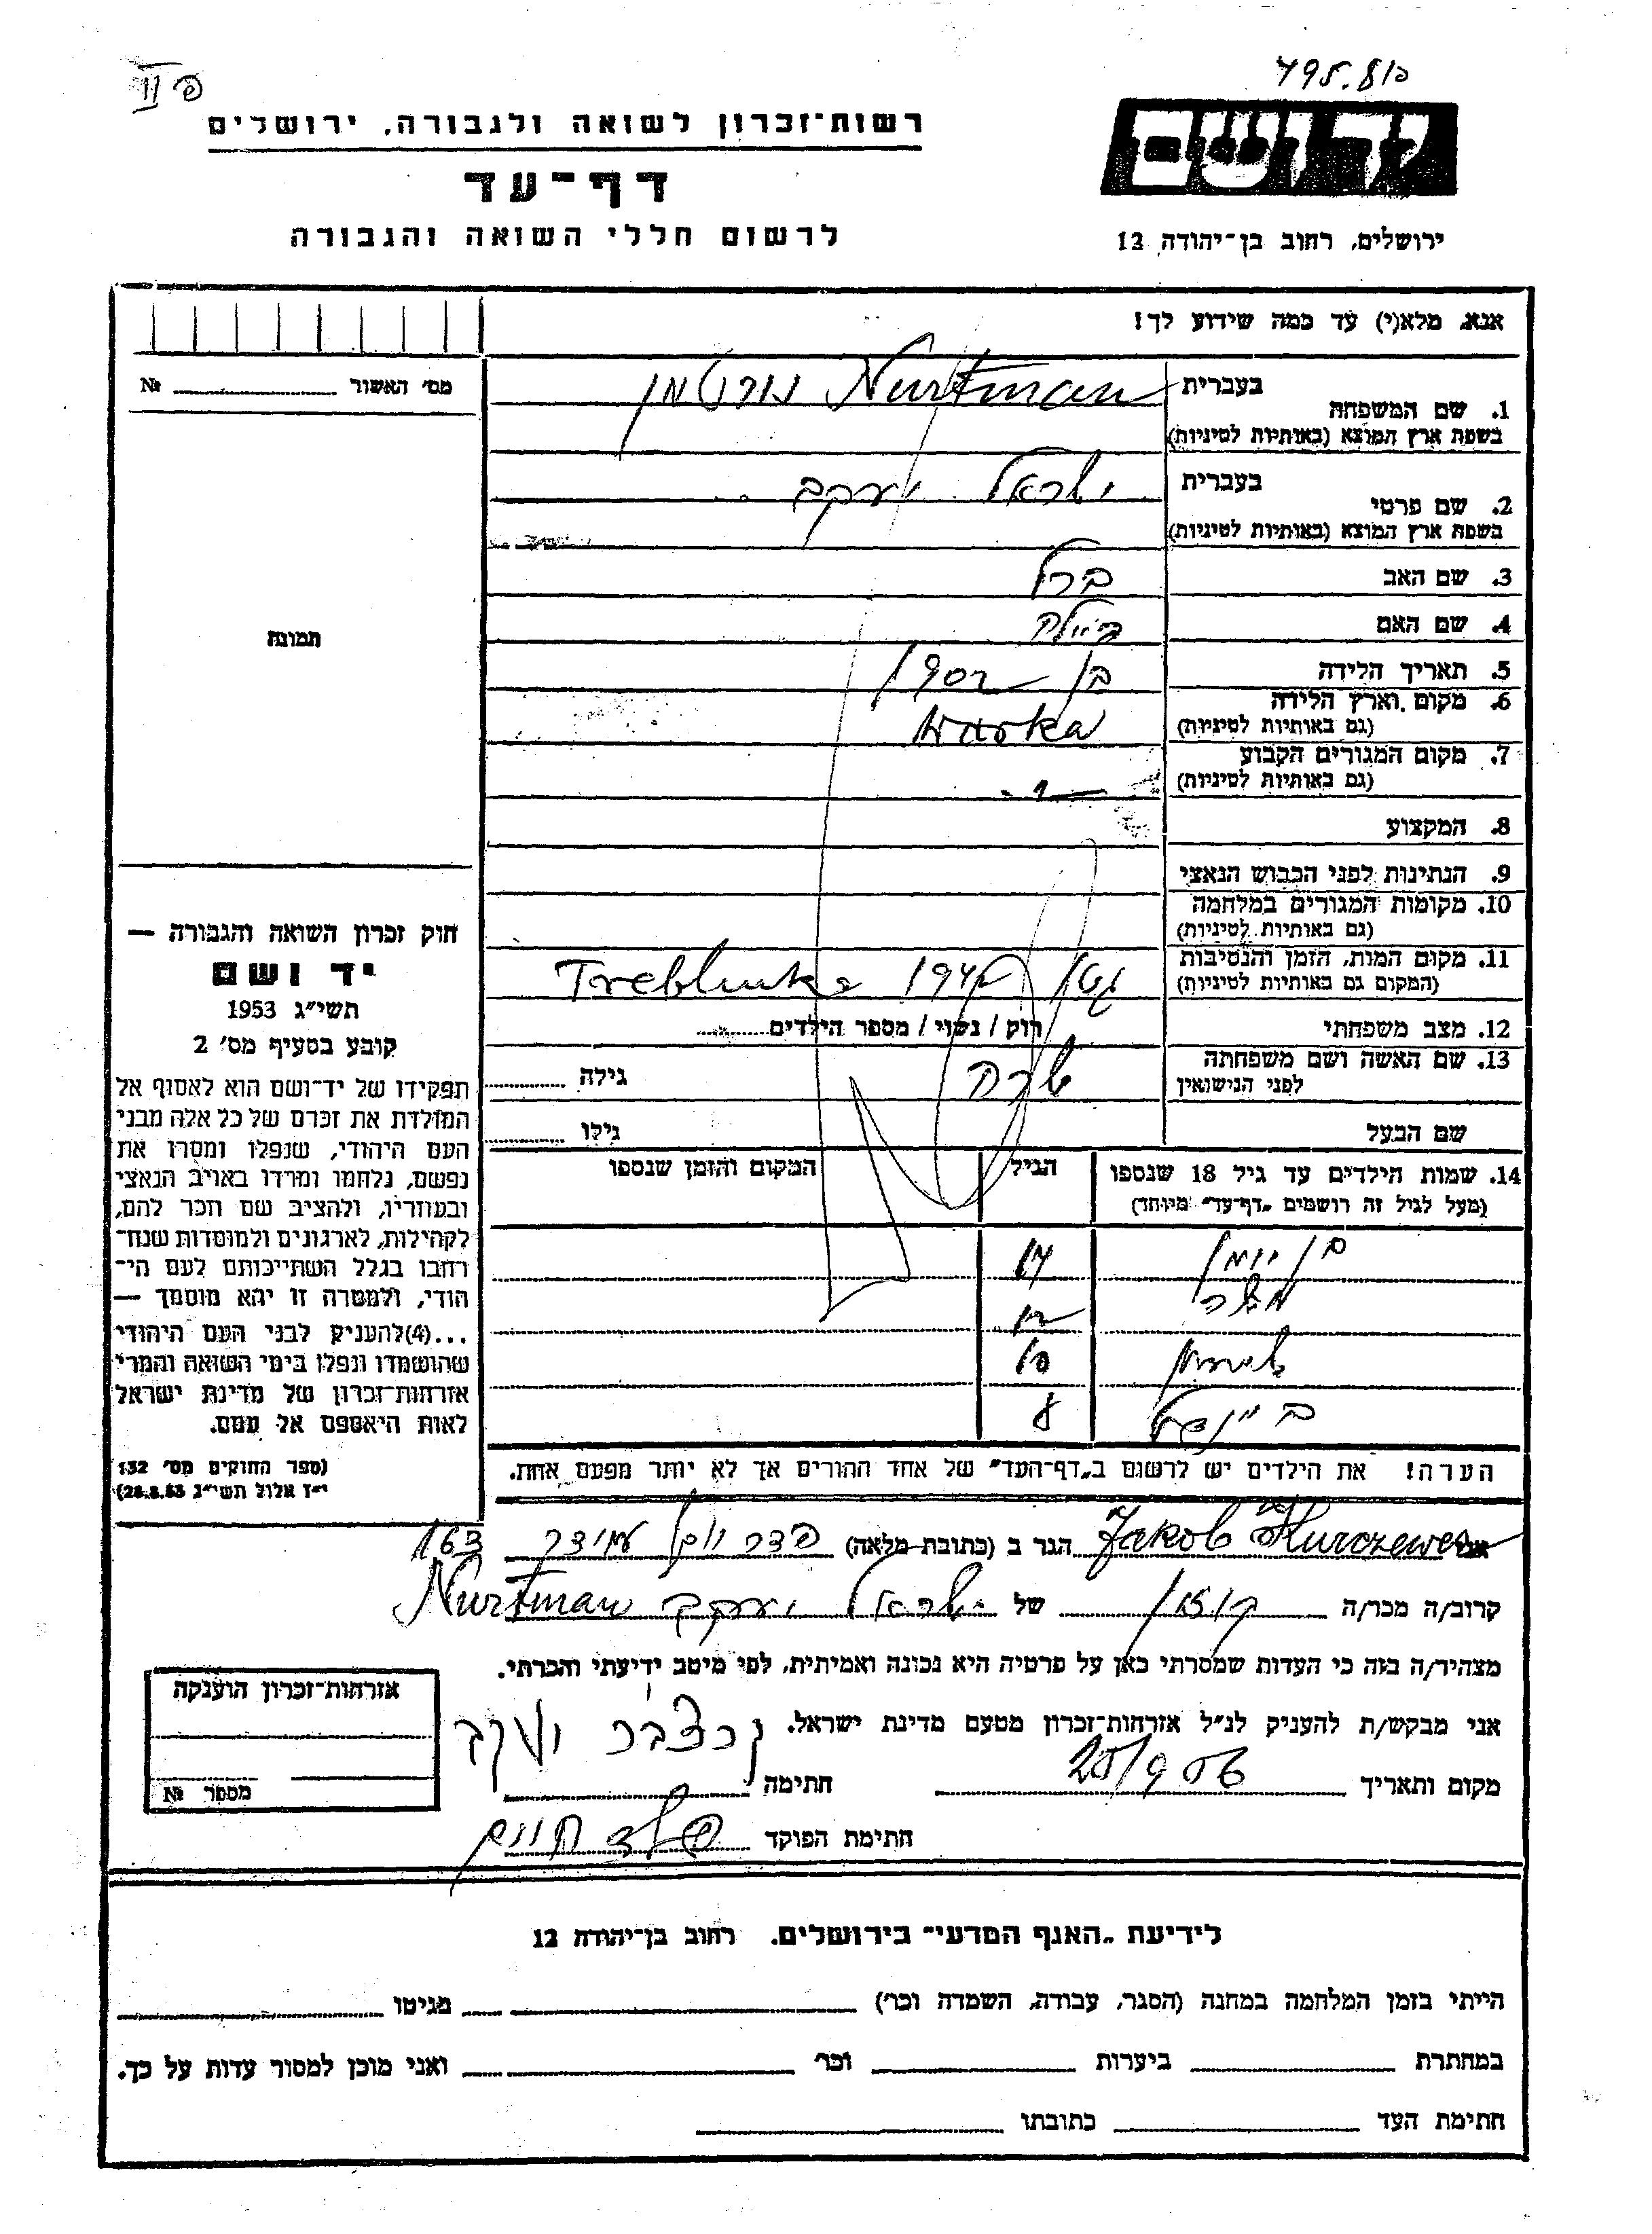 רשות־זכרון לשואה ולגבורה, ירושלים
דף־עד
לרשום חללי השואה והגבורה
ידושם
ירושלים, רחוב בן־יהודה 12
אנא, מלא(י) עד כמה שידוע לך!
מס׳ האשור №
תמונה
1. שם המשפחה בעברית נורטמן Nurtman
בשפת ארץ המוצא (באותיות לטיניות)
2. שם פרטי בעברית ישראל יעקב
בשפת ארץ המוצא (באותיות לטיניות)
3. שם האב ברל
4. שם האם ביילה
5. תאריך הלידה בן
6. מקום וארץ הלידה Warka
(גם באותיות לטיניות)
7. מקום המגורים הקבוע
(גם באותיות לטיניות)
8. המקצוע
9. הנתינות לפני הכבוש הנאצי
10. מקומות המגורים במלחמה
(גם באותיות לטיניות)
11. מקום המות, הזמן והנסיבות Treblinka
(המקום גם באותיות לטיניות)
12. מצב משפחתי רווק / נשוי / מספר הילדים
13. שם האשה ושם משפחתה שרה גילה
לפני הנישואין
שם הבעל גילו
14. שמות הילדים עד גיל 18 שנספו הגיל המקום והזמן שנספו
(מעל לגיל זה רושמים „דף־עד״ מיוחד)
14
משה 12
10
ביינדל 8
הערה! את הילדים יש לרשום ב„דף־העד״ של אחד ההורים אך לא יותר מפעם אחת.
חוק זכרון השואה והגבורה —
יד ושם
תשי״ג 1953
קובע בסעיף מס׳ 2
תפקידו של יד־ושם הוא לאסוף אל
המולדת את זכרם של כל אלה מבני
העם היהודי, שנפלו ומסרו את
נפשם, נלחמו ומרדו באויב הנאצי
ובעוזריו, ולהציב שם וזכר להם,
לקהילות, לארגונים ולמוסדות שנח־
רבו בגלל השתייכותם לעם הי־
הודי, ולמטרה זו יהא מוסמך —
...(4)להעניק לבני העם היהודי
שהושמדו ונפלו בימי השואה והמרי
אזרחות־זכרון של מדינת ישראל
לאות היאספם אל עמם.
(ספר החוקים מס׳ 132
י״ז אלול תשי״ג 28.8.53)
אני Jakob הגר ב (כתובת מלאה) 163
קרוב/ה מכר/ה של ישראל יעקב Nurtman
מצהיר/ה בזה כי העדות שמסרתי כאן על פרטיה היא נכונה ואמיתית, לפי מיטב ידיעתי והכרתי.
אני מבקש/ת להעניק לנ״ל אזרחות־זכרון מטעם מדינת ישראל.
מקום ותאריך חתימה יעקב
חתימת הפוקד חיים
אזרחות־זכרון הוענקה
מספר №
לידיעת „האגף המדעי״ בירושלים. רחוב בן־יהודה 12
הייתי בזמן המלחמה במחנה (הסגר, עבודה, השמדה וכו׳) בגיטו
במחתרת ביערות וכו׳ ואני מוכן למסור עדות על כך.
חתימת העד כתובתו